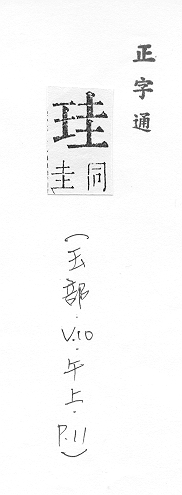 正字通
珪
同圭
(玉部.V.10.午上.P.11)